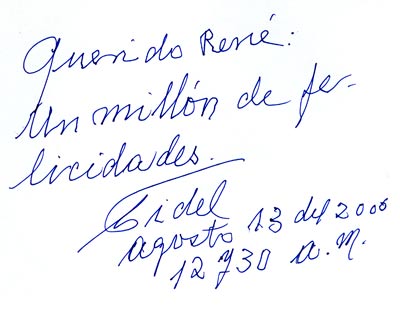 Querido René:
Un millón de fe-
licidades.
Fidel
agosto 13 del 2006
12 y 30 a.m.